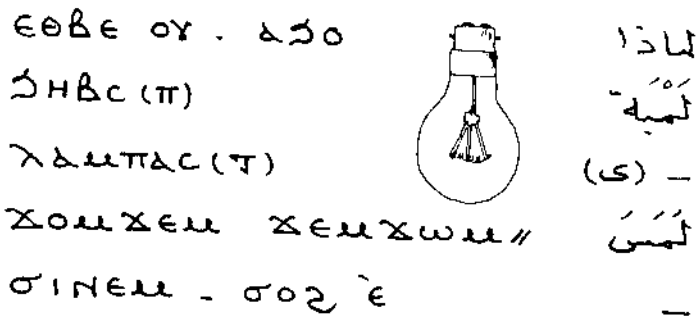 ⲉⲑⲃⲉ ⲟⲩ . ⲁϧⲟ لماذا
ϧⲏⲃⲥ (ⲡ) لَمْبَة
ⲗⲁⲙⲡⲁⲥ (ⲧ) – (ى)
ϫⲟⲙϫⲉⲙ ϫⲉⲙϫⲱⲙ〃 لَمَسَ
ϭⲓⲛⲉⲙ - ϭⲟϩ ⲉ̀ –